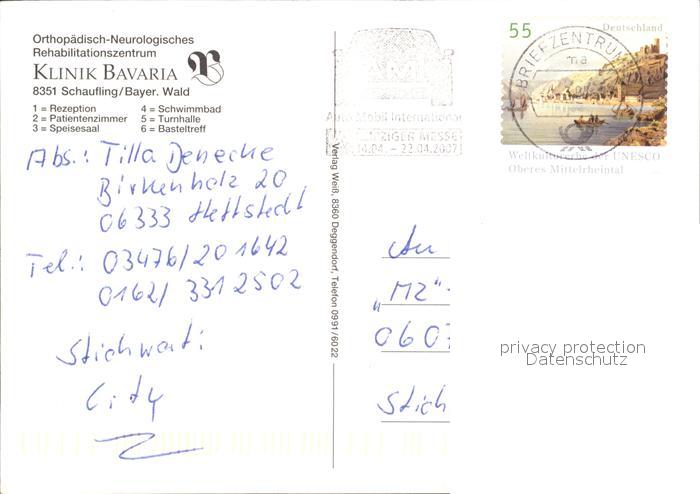 Orthopädisch-Neurologisches
Rehabilitationszentrum
KLINIK BAVARIA
8351 Schaufling/Bayer. Wald
1 = Rezeption 4 = Schwimmbad
2 = Patientenzimmer 5 = Turnhalle
3 = Speisesaal 6 = Basteltreff
Abs.: Tilla Denecke
Birkenholz 20
06333 Hettstedt
Tel.: 03476/201642
0162/3312502
Stichwort:
City
Verlag Weiß, 8360 Deggendorf, Telefon 0991/6022
AMI
Auto Mobil International
LEIPZIGER MESSE
14.04. – 22.04.2007
55 Deutschland
BRIEFZENTRUM
Weltkulturerbe der UNESCO
Oberes Mittelrheintal
An
„MZ“
060
Stich
privacy protection
Datenschutz